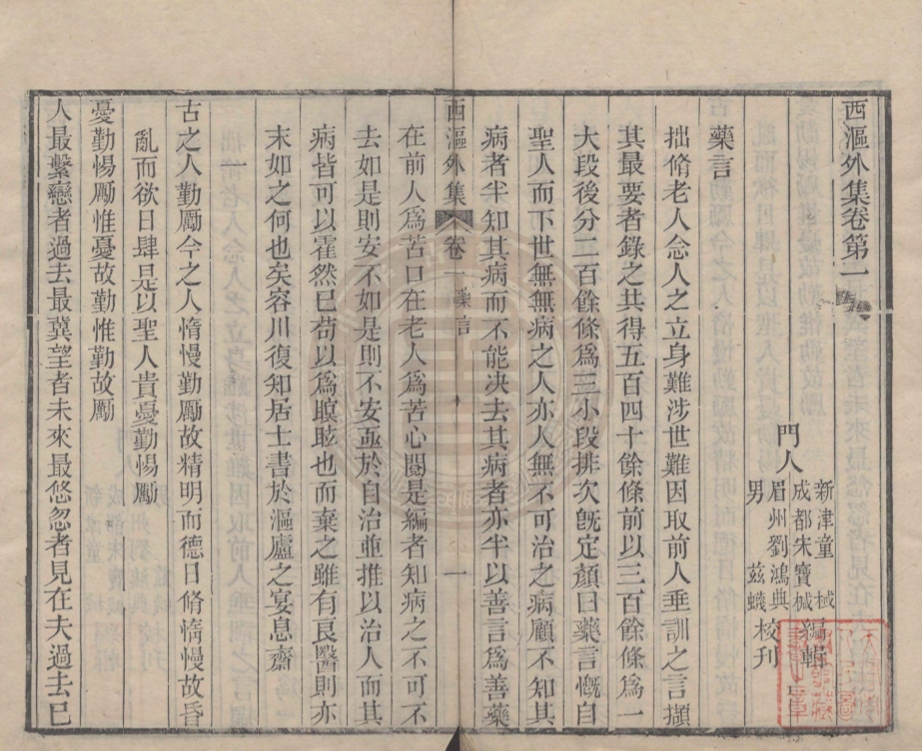 西漚外集卷第一
門人
新津童棫
成都朱寶棫編輯
眉州劉鴻典
男茲蟣校刊
藥言
拙脩老人念人之立身難涉世難因取前人垂訓之言擷
其最要者錄之共得五百四十餘條前以三百餘條爲一
大段後分二百餘條爲三小段排次旣定顏曰藥言慨自
聖人而下世無無病之人亦人無不可治之病顧不知其
病者半知其病而不能決去其病者亦半以善言爲善藥
西漚外集 卷一 藥言 一
在前人爲苦口在老人爲苦心閱是編者知病之不可不
去如是則安不如是則不安亟於自治亟推以治人而其
病皆可以霍然已苟以爲瞑眩也而棄之雖有良醫則亦
末如之何也矣容川復知居士書於漚廬之宴息齋
一
古之人勤勵今之人惰慢勤勵故精明而德日脩惰慢故昏
亂而欲日肆是以聖人貴憂勤惕勵
憂勤惕勵惟憂故勤惟勤故勵
人最繫戀者過去最冀望者未來最悠忽者見在夫過去已